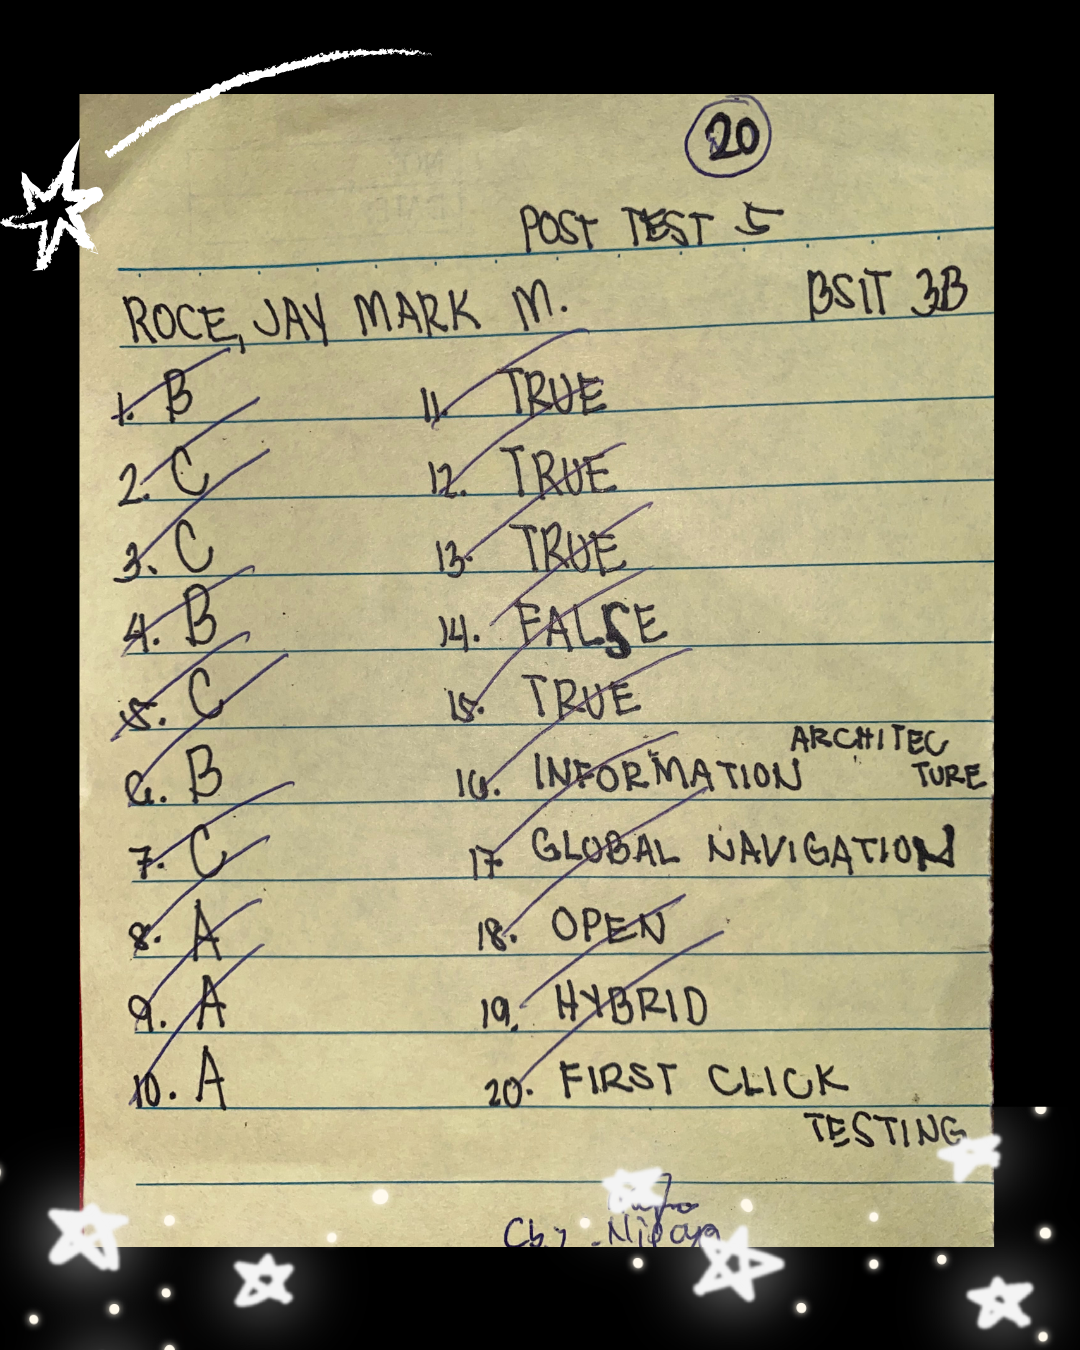 20
POST TEST 5
ROCE, JAY MARK M. BSIT 3B
1. B
2. C
3. C
4. B
5. C
6. B
7. C
8. A
9. A
10. A
11. TRUE
12. TRUE
13. TRUE
14. FALSE
15. TRUE
16. INFORMATION ARCHITEC
TURE
17. GLOBAL NAVIGATION
18. OPEN
19. HYBRID
20. FIRST CLICK
TESTING
Cby